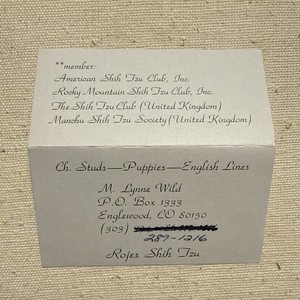 **member:
American Shih Tzu Club, Inc.
Rocky Mountain Shih Tzu Club, Inc.
The Shih Tzu Club (United Kingdom)
Manchu Shih Tzu Society (United Kingdom)
Ch. Studs—Puppies—English Lines
M. Lynne Wild
P.O. Box 1333
Englewood, CO 80150
(303)
289-1216
Rojes Shih Tzu